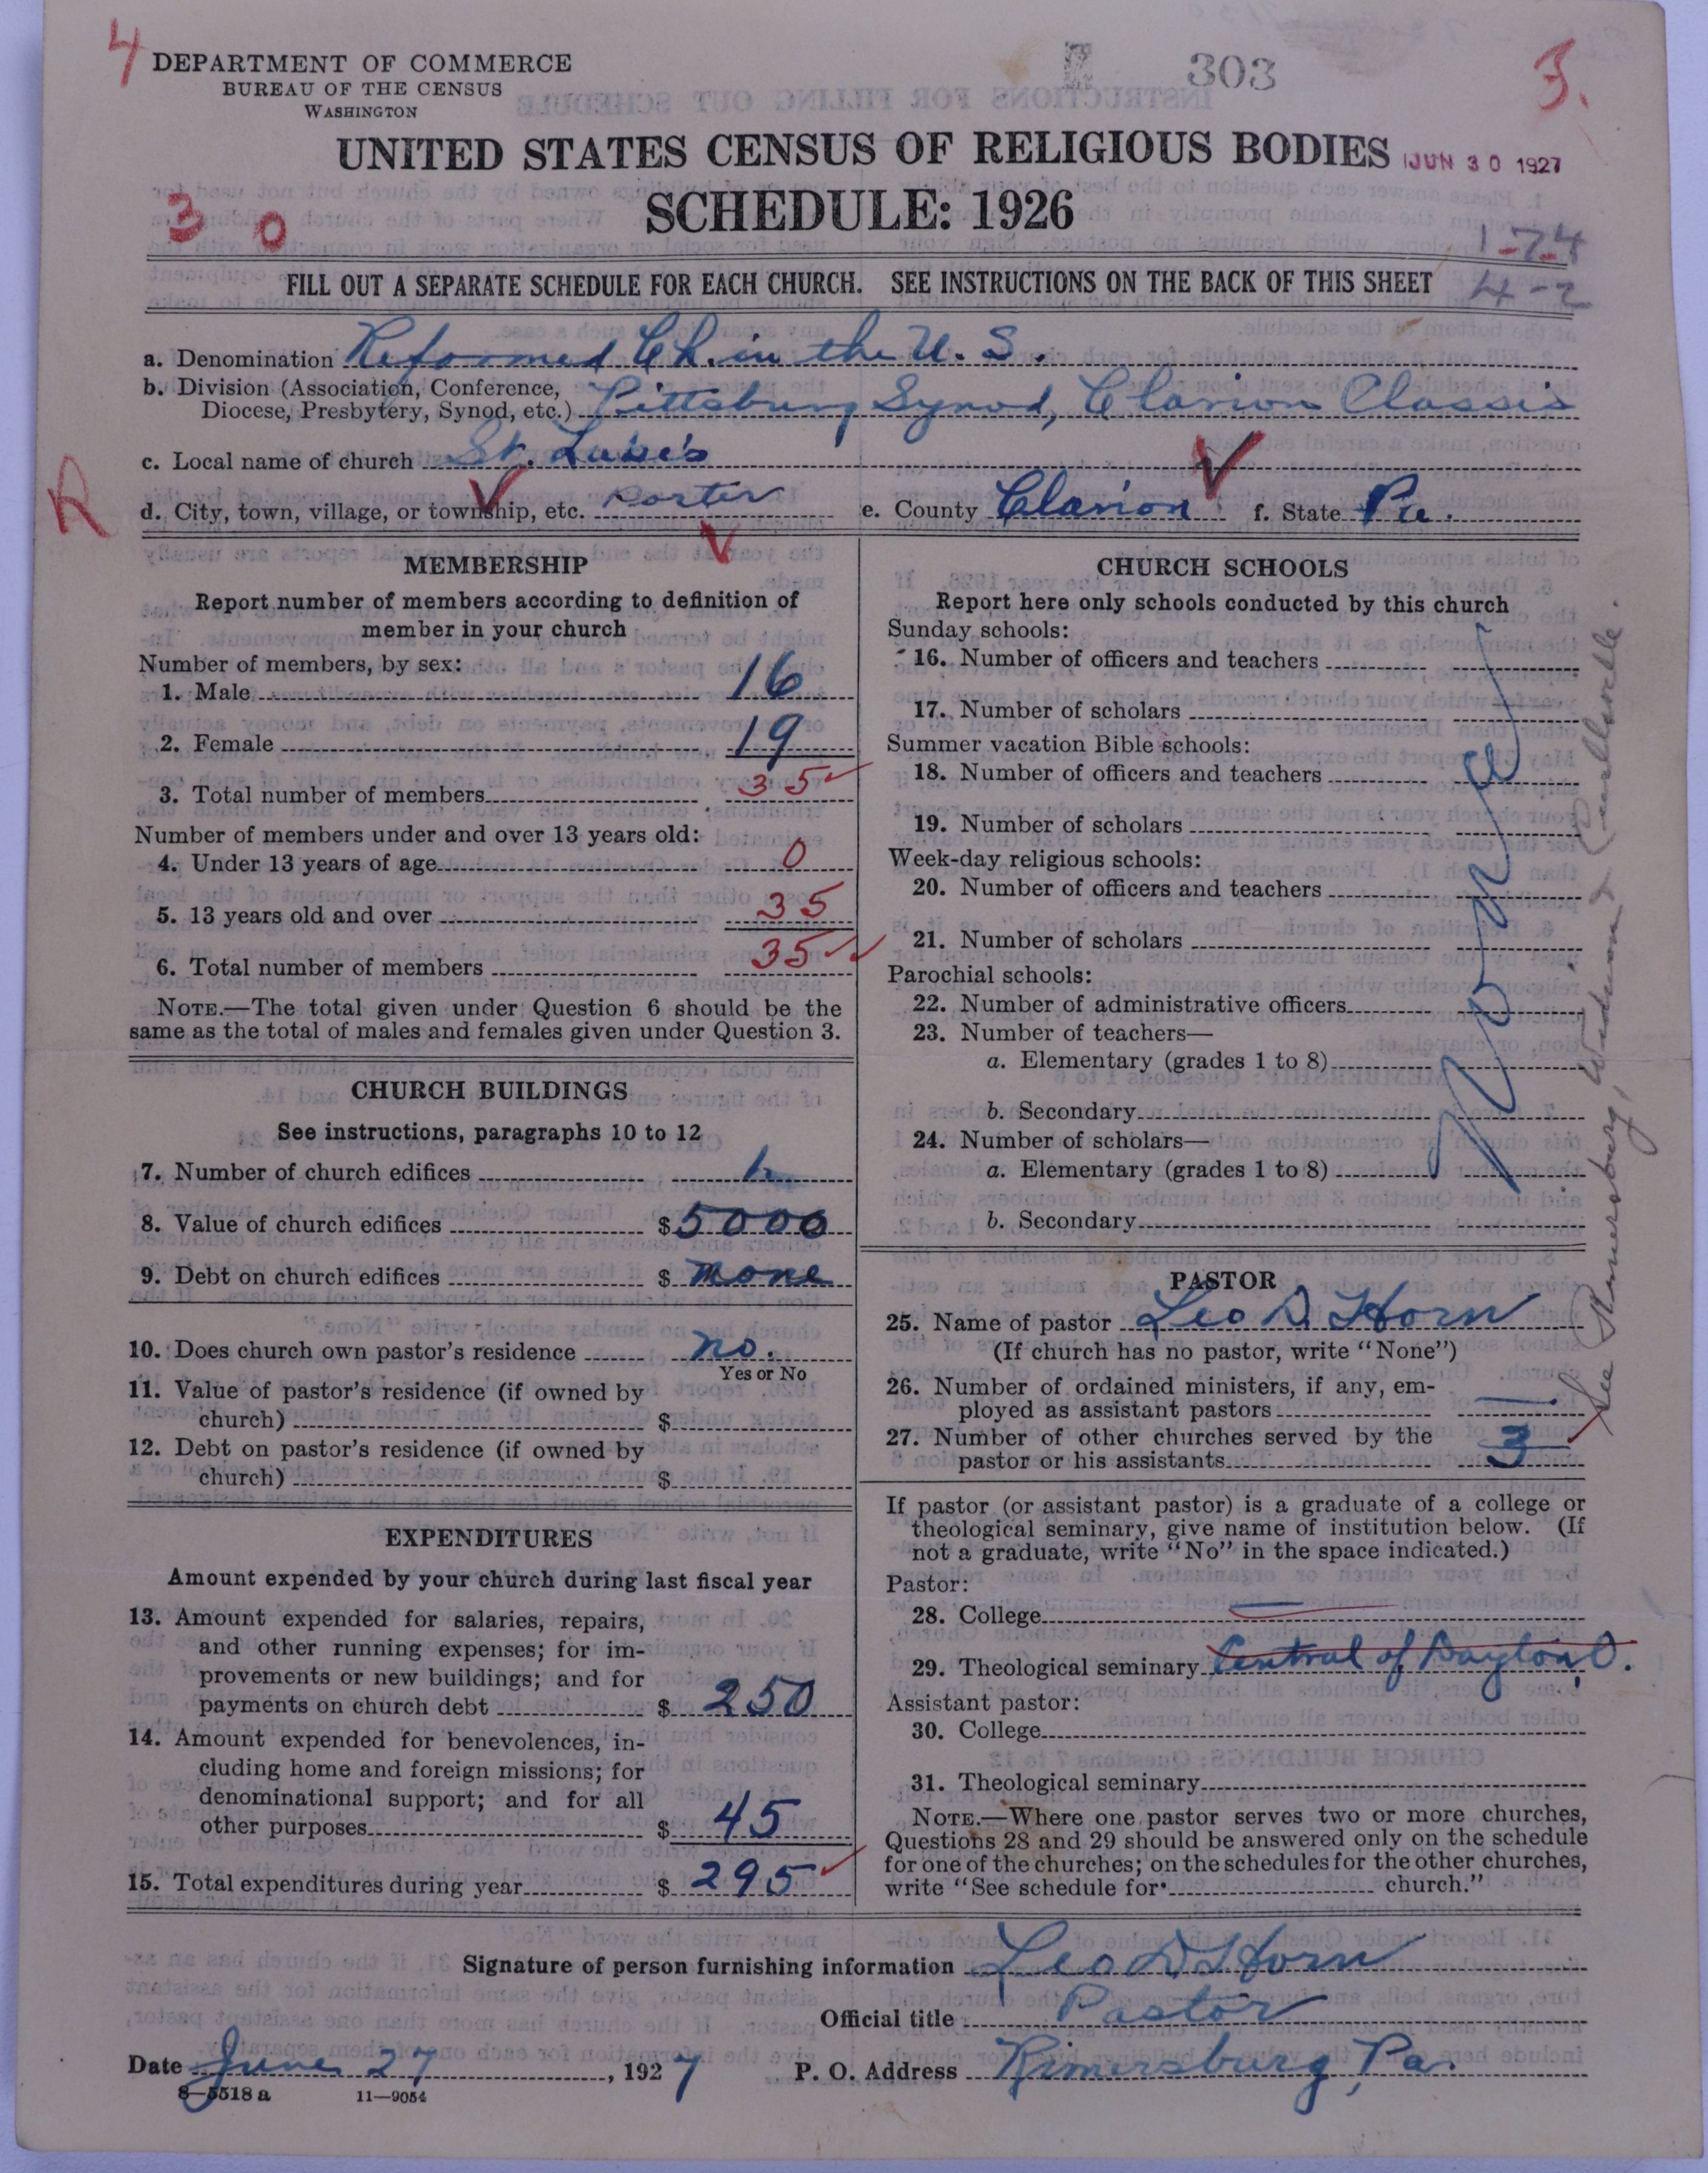 4
DEPARTMENT OF COMMERCE
BUREAU OF THE CENSUS
WASHINGTON
303
3.
UNITED STATES CENSUS OF RELIGIOUS BODIES
JUN 30 1927
SCHEDULE: 1926
3 0
1-74
4-2
FILL OUT A SEPARATE SCHEDULE FOR EACH CHURCH. SEE INSTRUCTIONS ON THE BACK OF THIS SHEET
a. Denomination Reformed Ch. in the U. S.
b. Division (Association, Conference,
Diocese, Presbytery, Synod, etc.) Pittsburg Synod, Clarion Classis
c. Local name of church St. Luke's
R
d. City, town, village, or township, etc. Porter e. County Clarion f. State Pa.
MEMBERSHIP
Report number of members according to definition of
member in your church
Number of members, by sex:
1. Male 16
2. Female 19
3. Total number of members 35
Number of members under and over 13 years old:
4. Under 13 years of age 0
5. 13 years old and over 35
6. Total number of members 35
NOTE.—The total given under Question 6 should be the
same as the total of males and females given under Question 3.
CHURCH BUILDINGS
See instructions, paragraphs 10 to 12
7. Number of church edifices 1
8. Value of church edifices $5000
9. Debt on church edifices $ none
10. Does church own pastor's residence no.
Yes or No
11. Value of pastor's residence (if owned by
church) $
12. Debt on pastor's residence (if owned by
church) $
EXPENDITURES
Amount expended by your church during last fiscal year
13. Amount expended for salaries, repairs,
and other running expenses; for im-
provements or new buildings; and for
payments on church debt $ 250
14. Amount expended for benevolences, in-
cluding home and foreign missions; for
denominational support; and for all
other purposes $ 45
15. Total expenditures during year $ 295
CHURCH SCHOOLS
Report here only schools conducted by this church
Sunday schools:
16. Number of officers and teachers
17. Number of scholars
Summer vacation Bible schools:
18. Number of officers and teachers
19. Number of scholars
Week-day religious schools:
20. Number of officers and teachers
21. Number of scholars
Parochial schools:
22. Number of administrative officers
23. Number of teachers—
a. Elementary (grades 1 to 8)
b. Secondary
24. Number of scholars—
a. Elementary (grades 1 to 8)
b. Secondary
None
PASTOR
25. Name of pastor Leo D. Horn
(If church has no pastor, write "None")
26. Number of ordained ministers, if any, em-
ployed as assistant pastors —
27. Number of other churches served by the
pastor or his assistants 3
See Rimersburg,
If pastor (or assistant pastor) is a graduate of a college or
theological seminary, give name of institution below. (If
not a graduate, write "No" in the space indicated.)
Pastor:
28. College —
29. Theological seminary Central of Dayton, O.
Assistant pastor:
30. College
31. Theological seminary
NOTE.—Where one pastor serves two or more churches,
Questions 28 and 29 should be answered only on the schedule
for one of the churches; on the schedules for the other churches,
write "See schedule for church."
Signature of person furnishing information Leo D Horn
Official title Pastor
Date June 27, 1927 P. O. Address Rimersburg, Pa.
8—5518 a 11—9054